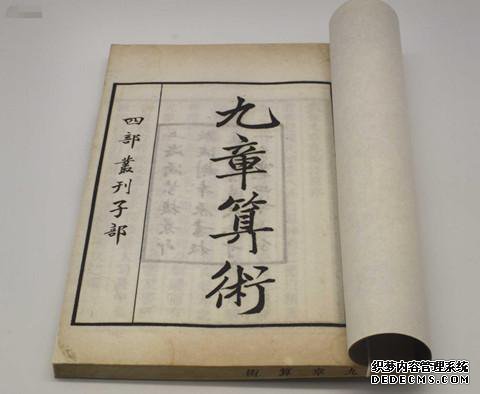 九章算術
四部叢刊子部
九章算術
织梦内容管理系统
DEDECMS.COM